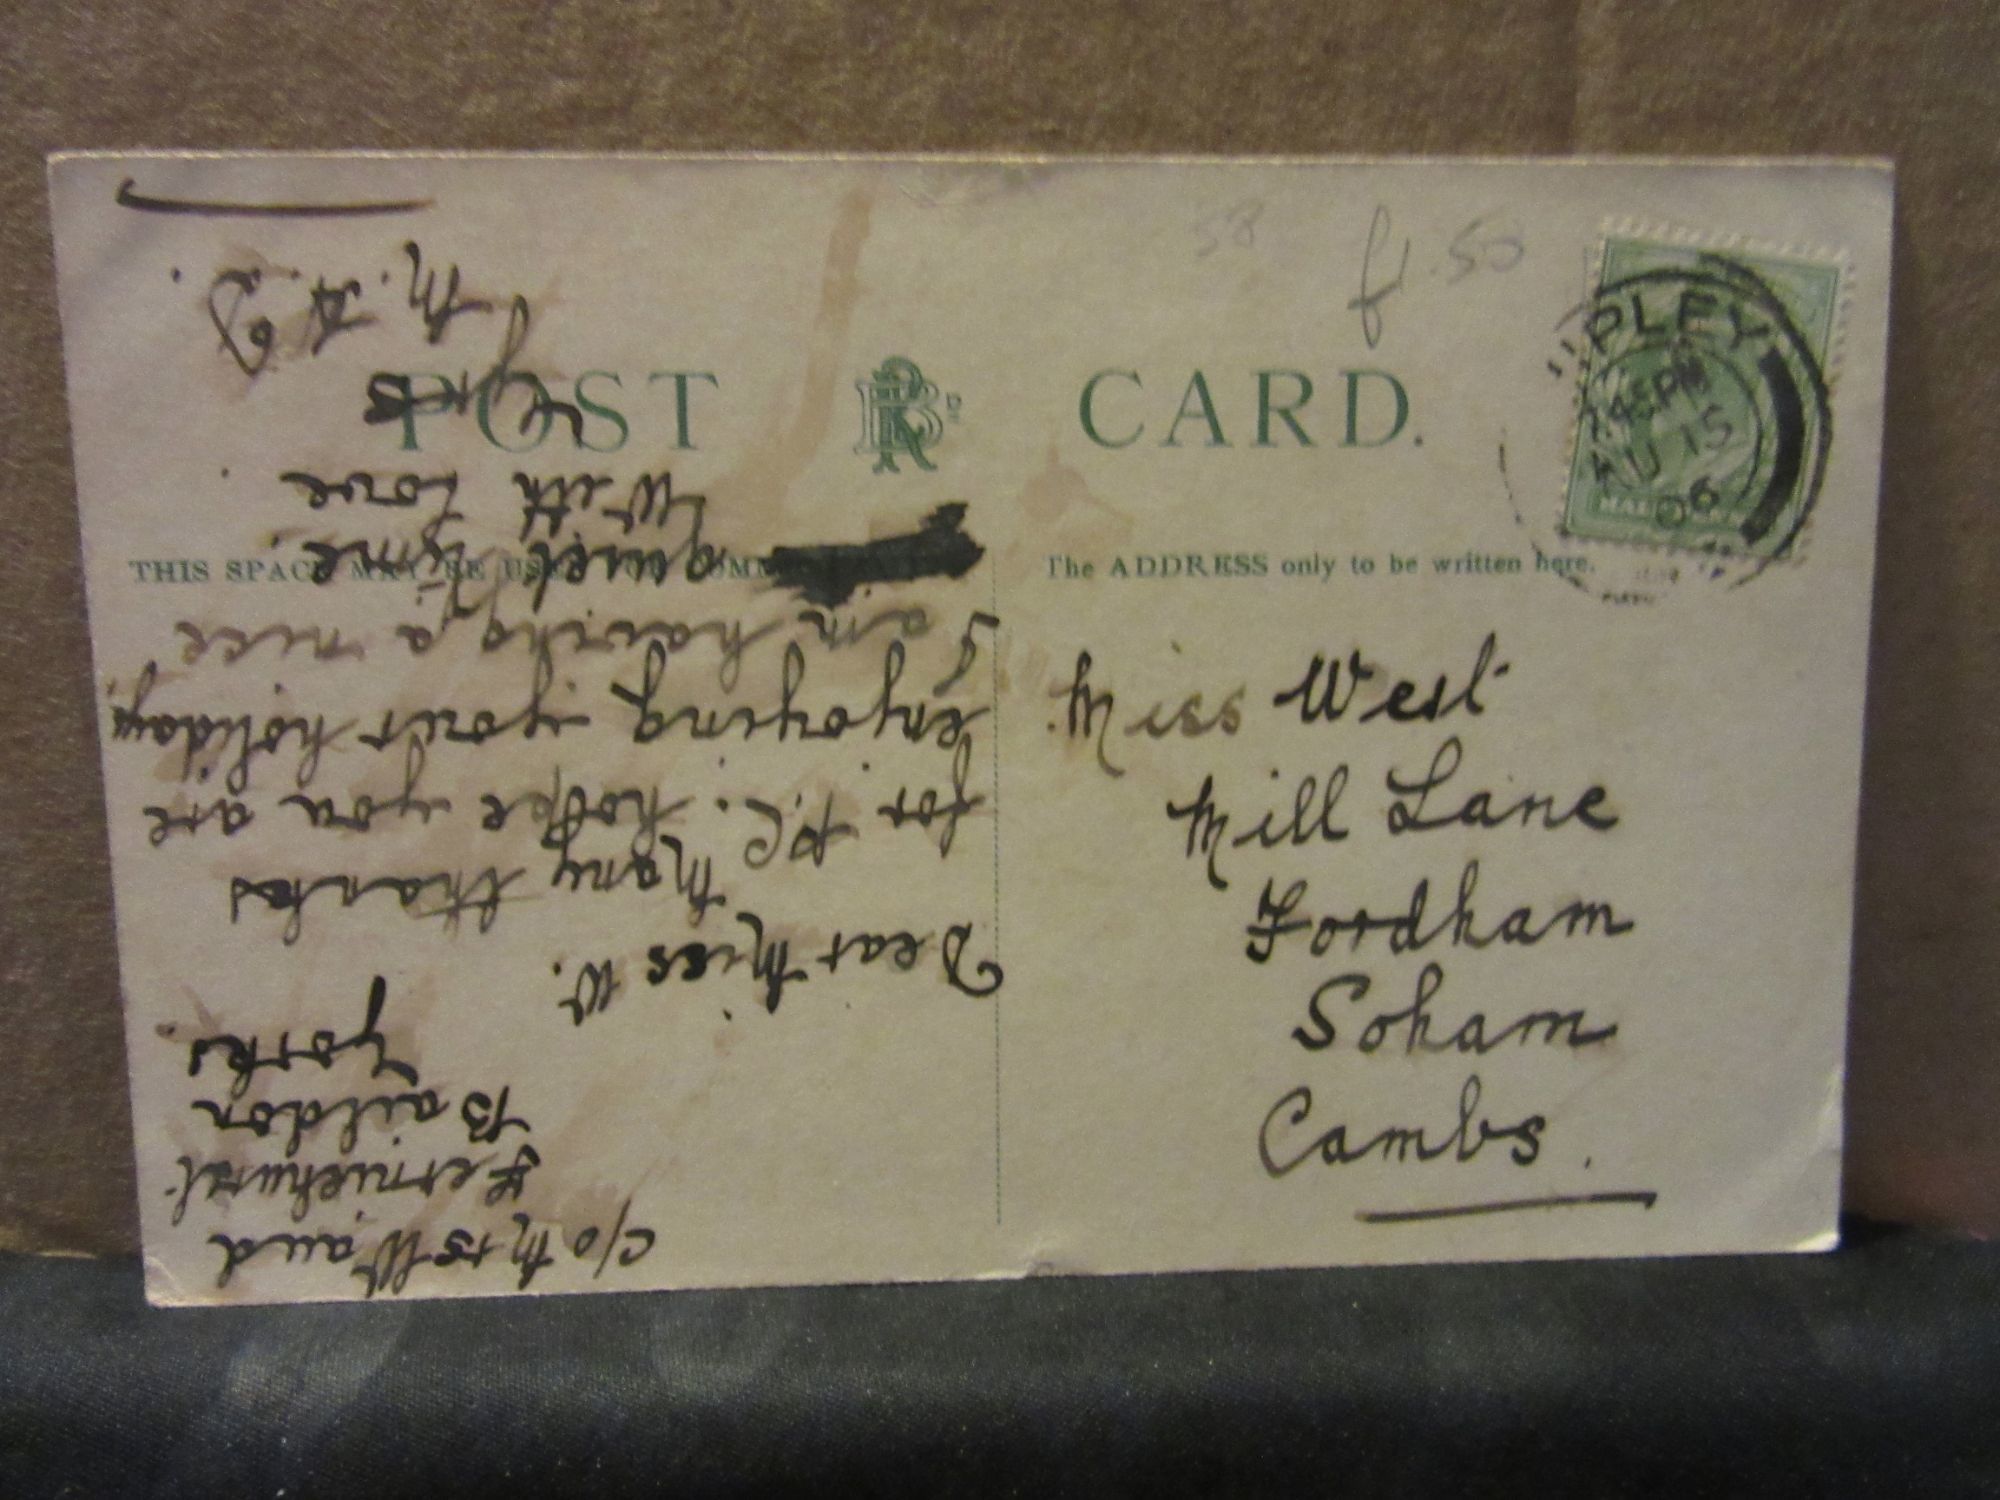 58 £1.50
POST CARD.
THIS SPACE MAY BE
The ADDRESS only to be written here.
PLEY
7.45PM
AU 15
06
Miss West
Mill Lane
Fordham
Soham
Cambs.
c/o Mrs Waud
Ferniehurst
Baildon
Yorks.
Dear Miss W.
Many thanks
for P.C. hope you are
enjoying your holidays
I am having a nice
quiet time.
With Love
Yrs
M. A. D.